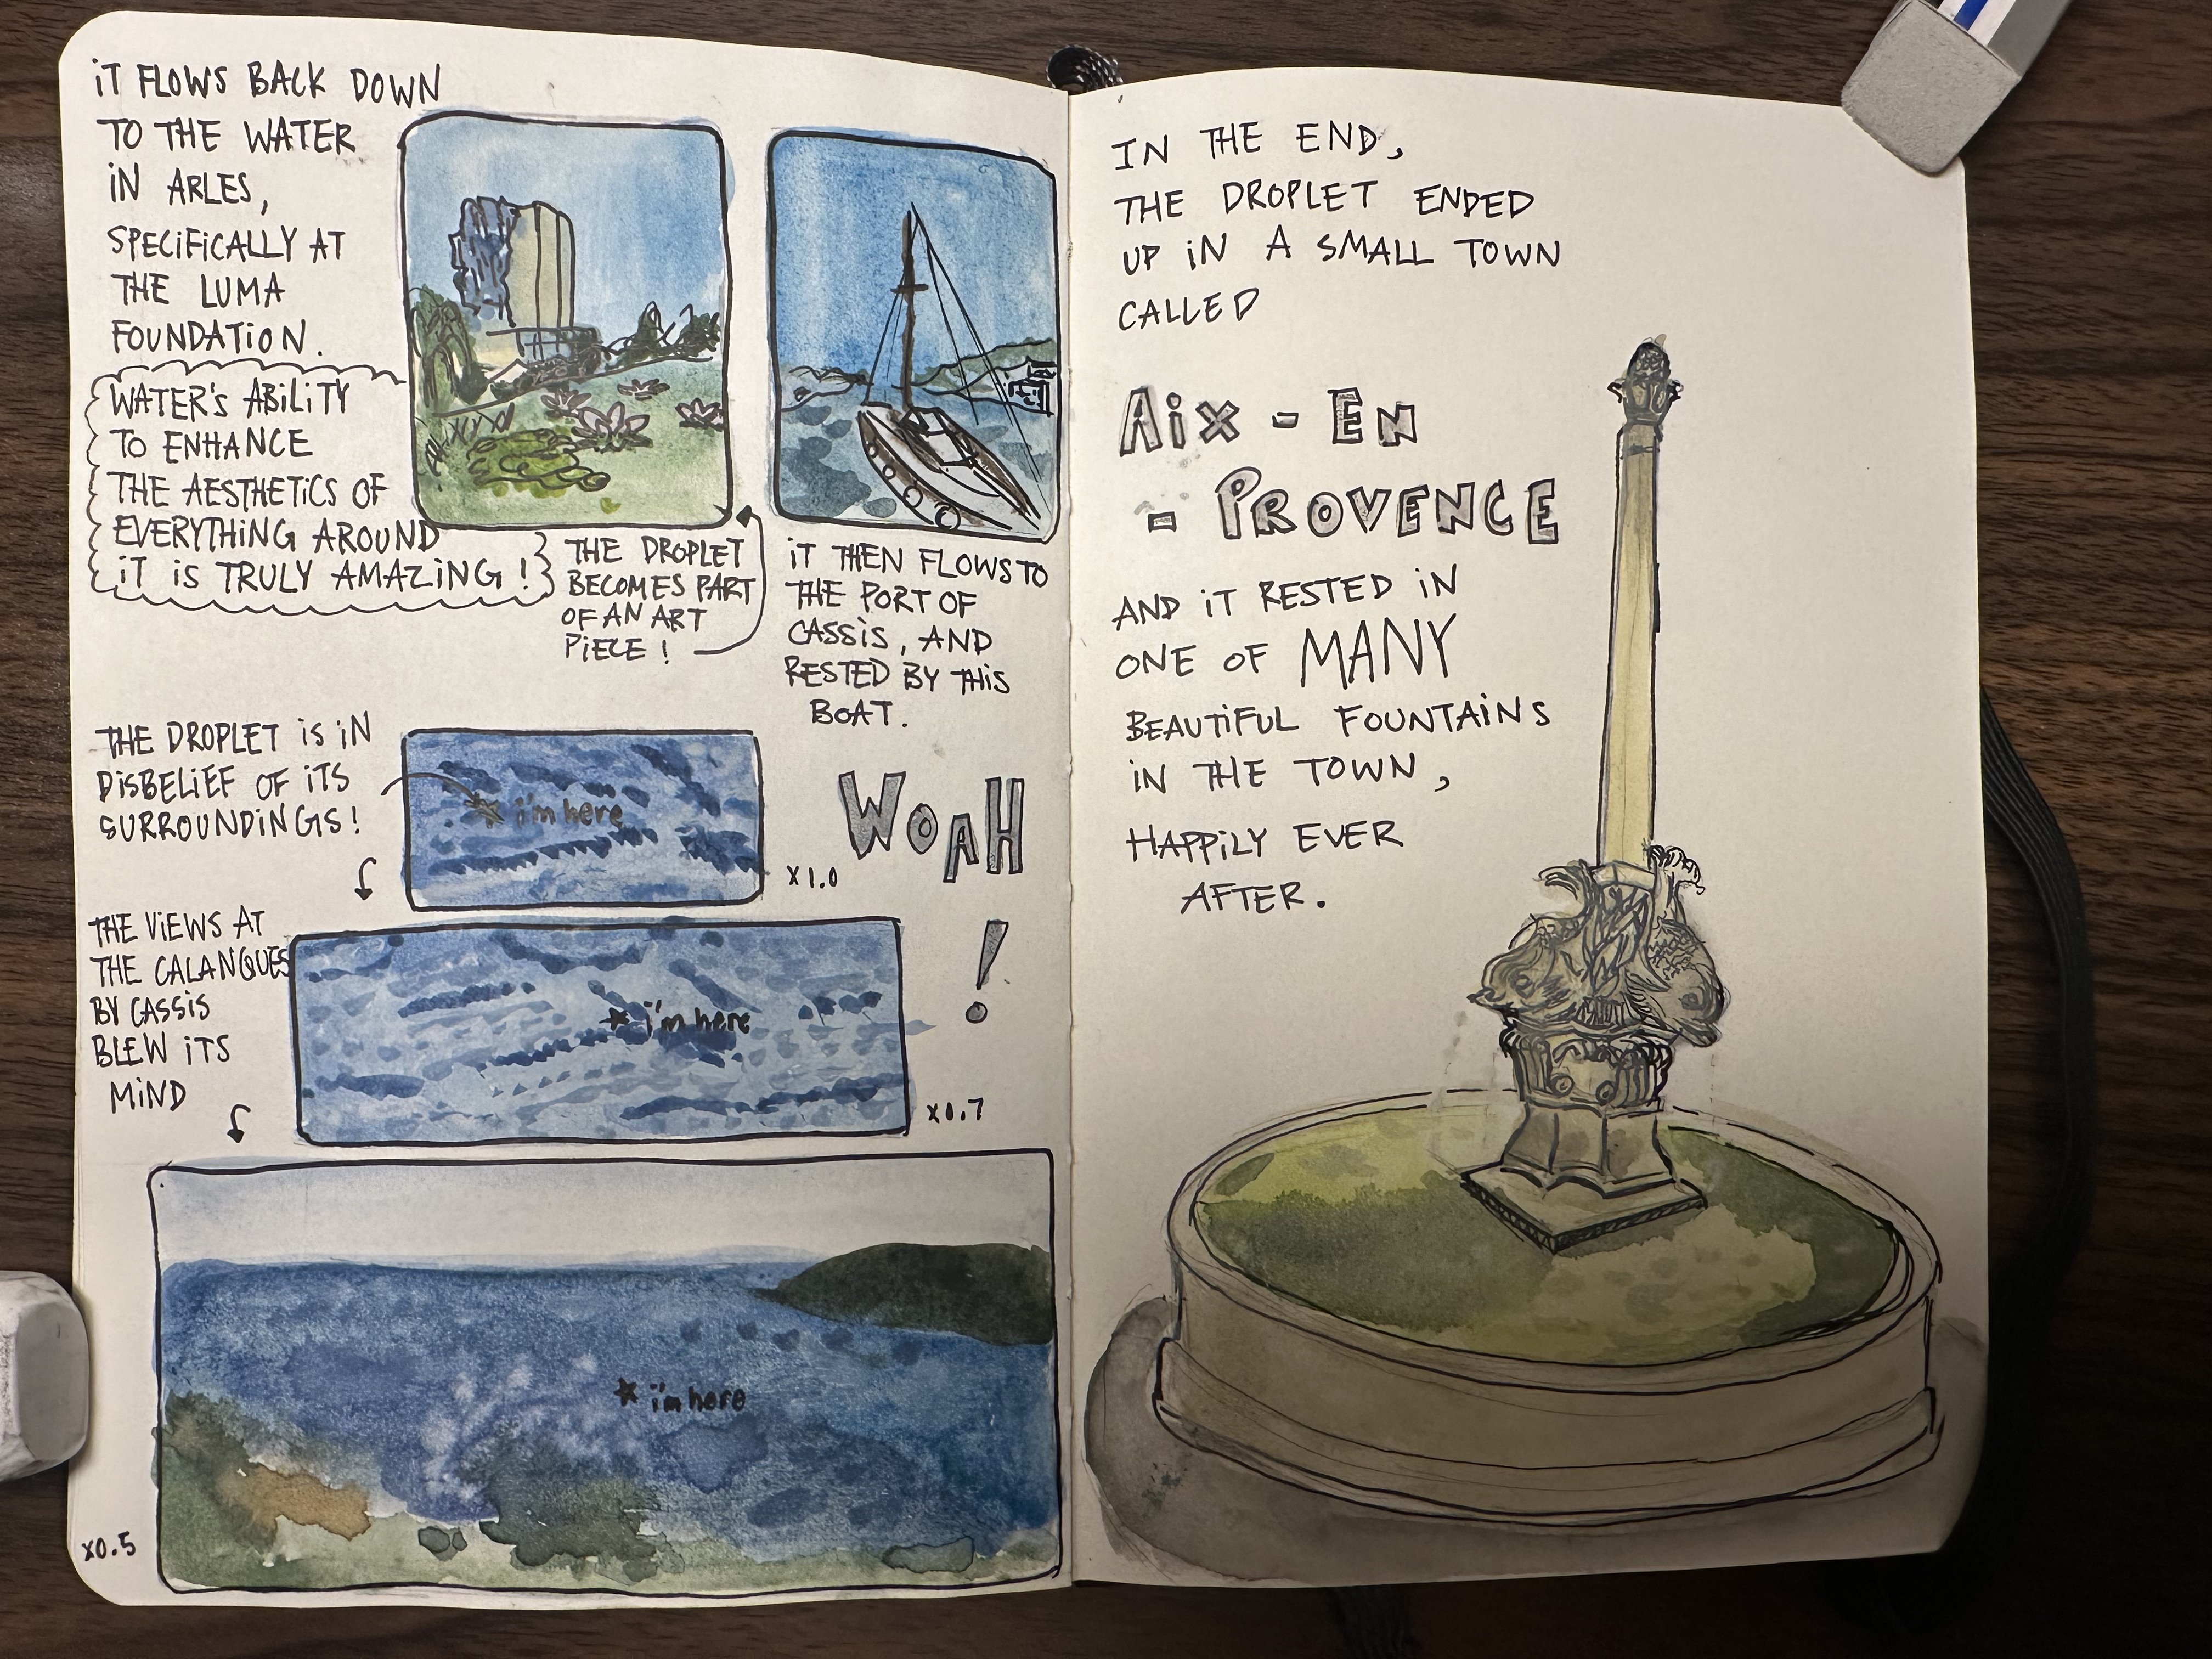 iT FLOWS BACK DOWN
TO THE WATER
iN ARLES,
SPECiFiCALLY AT
THE LUMA
FOUNDATiON.
WATER'S ABiLiTY
TO ENHANCE
THE AESTHETiCS OF
EVERYTHiNG AROUND
iT iS TRULY AMAZiNG!
THE DROPLET
BECOMES PART
OF AN ART
PiECE!
iT THEN FLOWS TO
THE PORT OF
CASSiS, AND
RESTED BY THiS
BOAT.
THE DROPLET iS iN
DiSBELiEF OF iTS
SURROUNDiNGS!
i'm here
x1.0
WOAH
!
THE ViEWS AT
THE CALANQUES
BY CASSiS
BLEW iTS
MiND
i'm here
x0.7
i'm here
x0.5
IN THE END,
THE DROPLET ENDED
UP iN A SMALL TOWN
CALLED
AiX - EN
- PROVENCE
AND iT RESTED iN
ONE OF MANY
BEAUTiFUL FOUNTAiNS
iN THE TOWN,
HAPPiLY EVER
AFTER.